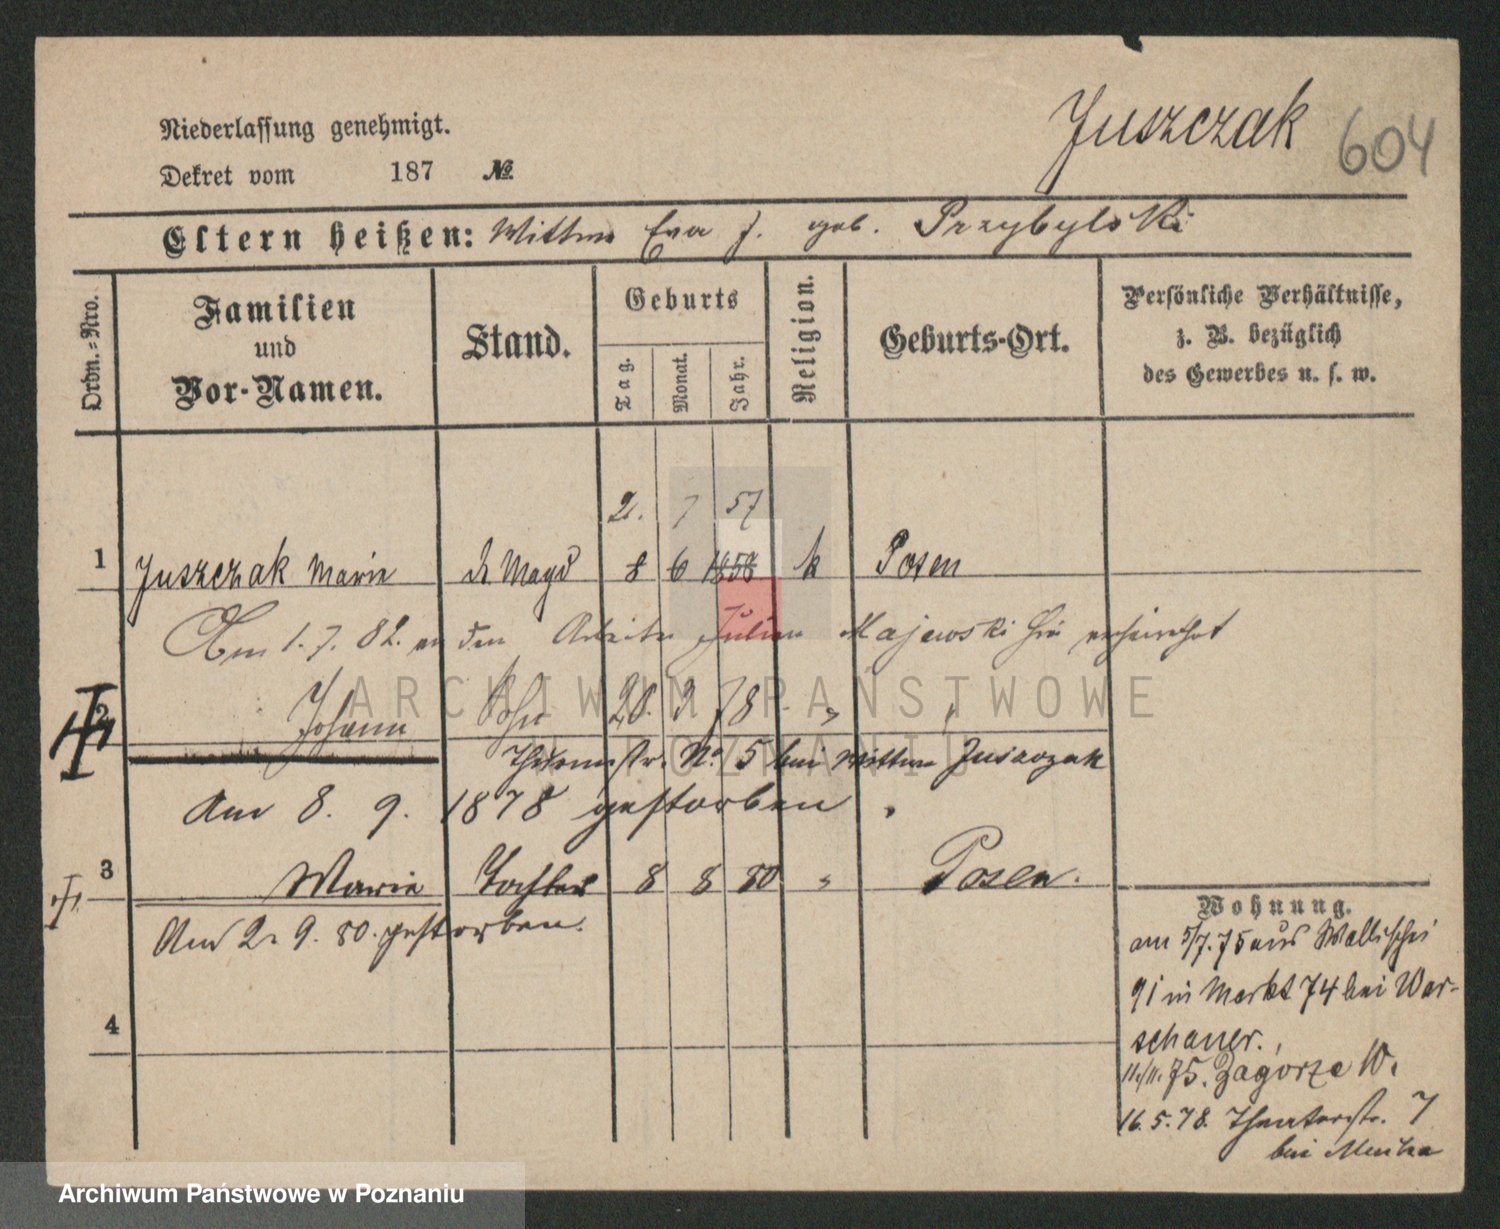 Juszczak 604
Niederlassung genehmigt.
Dekret vom 187 №
Eltern heißen: Wittwe Eva J. geb. Przybylski
Ordn.-Nro.
Familien
und
Vor-Namen.
Stand.
Geburts
Tag. Monat. Jahr.
Religion.
Geburts-Ort.
Persönliche Verhältnisse,
z. B. bezüglich
des Gewerbes u. s. w.
2. 7 57
1 Juszczak Marie d. Magd 8 6 1858 k Posen
Am 1. 7. 82. an den Arbeiter Julian Majewski hier verheirathet
2 Johann Sohn 28. 2 78. "
Thurmstr. No. 5 bei Wittwe Juszczak
Am 8. 9. 1878 gestorben.
3 Marie Tochter 8 8 80 " Posen.
Am 2. 9. 80. gestorben.
4
Wohnung.
am 5/7. 75 aus Wallischei
91 in Markt 74 bei War-
schauer.
11./11. 75. Zagorze 10.
16. 5. 78. Theaterstr. 7
bei
ARCHIWUM PAŃSTWOWE
W POZNANIU
Archiwum Państwowe w Poznaniu